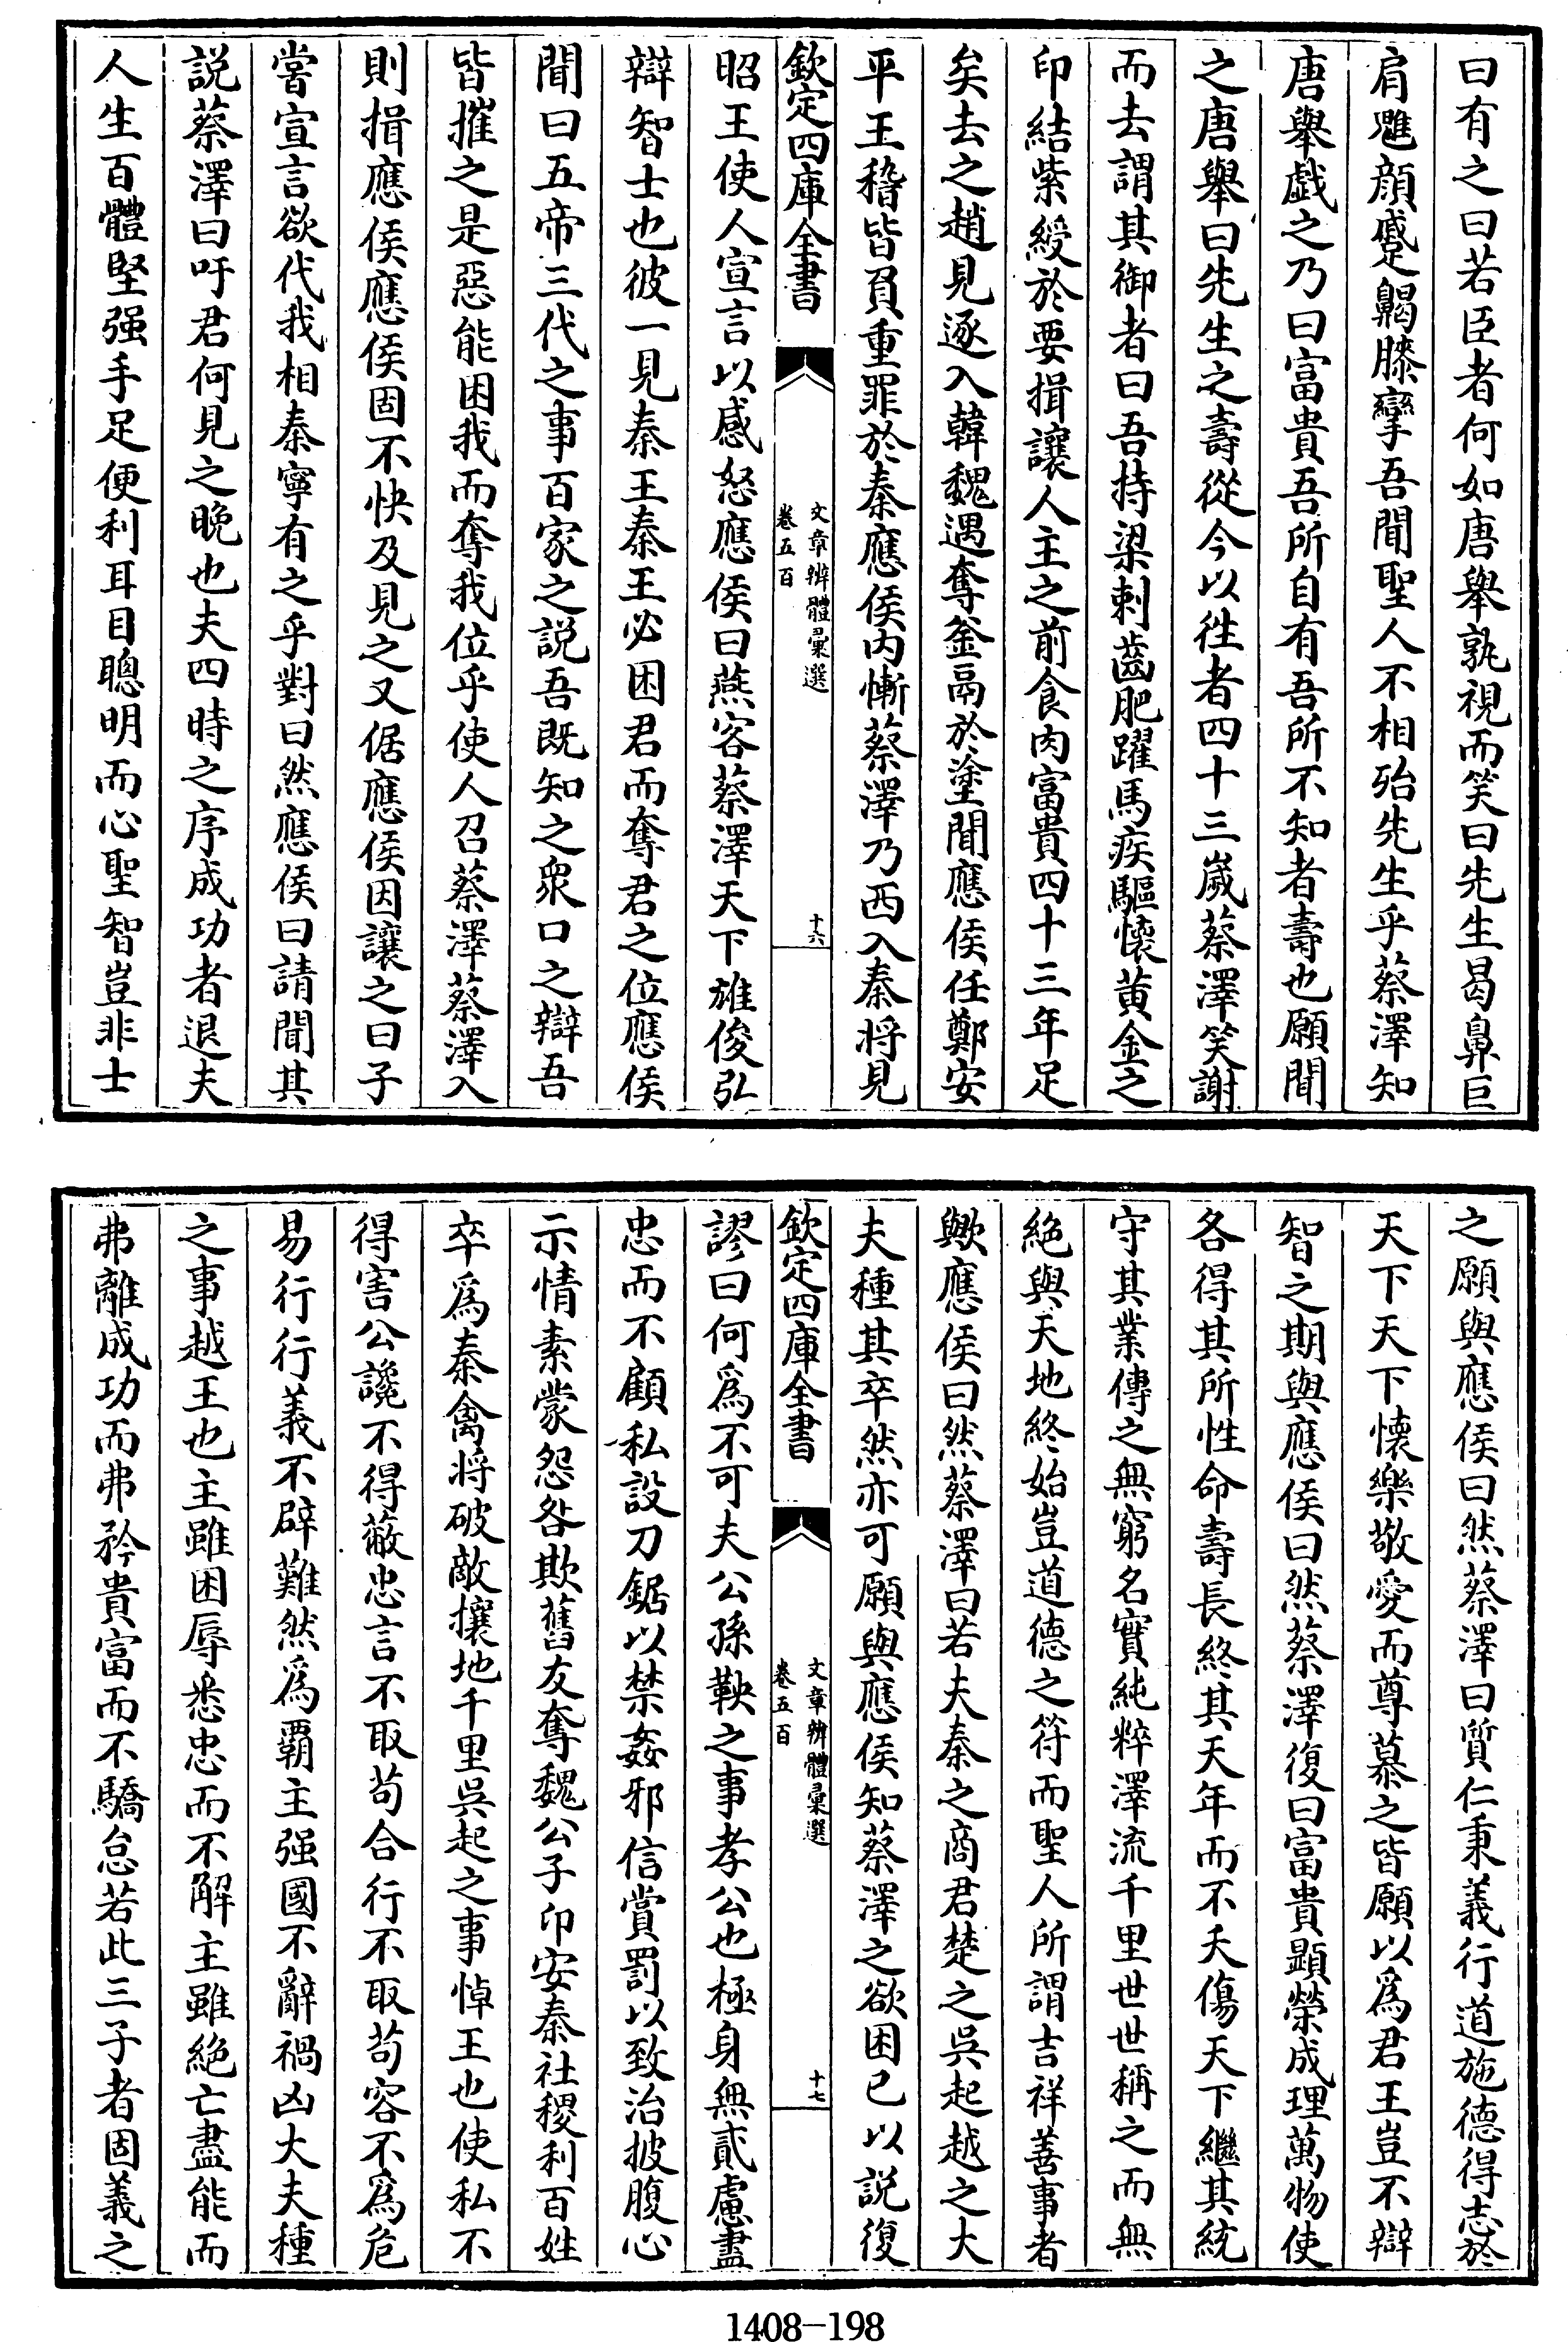 曰有之曰若臣者何如唐舉孰視而笑曰先生曷鼻巨
肩魋顔蹙齃膝攣吾聞聖人不相殆先生乎蔡澤知
唐舉戯之乃曰富貴吾所自有吾所不知者壽也願聞
之唐舉曰先生之壽從今以徃者四十三嵗蔡澤笑謝
而去謂其御者曰吾持梁刺齒肥躍馬疾驅懷黄金之
印結紫綬於要揖讓人主之前食肉富貴四十三年足
矣去之趙見逐入韓魏遇奪釡鬲於塗聞應侯任鄭安
平王稽皆負重罪於秦應侯内慚蔡澤乃西入秦将見
欽定四庫全書
文章辨體彙選
卷五百
十六
昭王使人宣言以感怒應侯曰燕客蔡澤天下雄俊弘
辯智士也彼一見秦王秦王必困君而奪君之位應侯
聞曰五帝三代之事百家之説吾既知之衆口之辯吾
皆摧之是惡能困我而奪我位乎使人召蔡澤蔡澤入
則揖應侯應侯固不快及見之又倨應侯因讓之曰子
嘗宣言欲代我相秦寧有之乎對曰然應侯曰請聞其
説蔡澤曰吁君何見之晩也夫四時之序成功者退夫
人生百體堅强手足便利耳目聰明而心聖智豈非士
之願與應侯曰然蔡澤曰質仁秉義行道施德得志於
天下天下懷樂敬愛而尊慕之皆願以爲君王豈不辯
智之期與應侯曰然蔡澤復曰富貴顯榮成理萬物使
各得其所性命壽長終其天年而不夭傷天下繼其統
守其業傳之無窮名實純粹澤流千里世世稱之而無
絶與天地終始豈道德之符而聖人所謂吉祥善事者
歟應侯曰然蔡澤曰若夫秦之商君楚之吳起越之大
夫種其卒然亦可願與應侯知蔡澤之欲困已以説復
欽定四庫全書
文章辨體彙選
卷五百
十七
謬曰何爲不可夫公孫鞅之事孝公也極身無貳慮盡
忠而不顧私設刀鋸以禁姦邪信賞罰以致治披腹心
示情素蒙怨咎欺舊友奪魏公子卬安秦社稷利百姓
卒爲秦禽将破敵攘地千里吳起之事悼王也使私不
得害公讒不得蔽忠言不取苟合行不取苟容不爲危
易行行義不辟難然爲覇主强國不辭禍凶大夫種
之事越王也主雖困辱悉忠而不解主雖絶亡盡能而
弗離成功而弗矜貴富而不驕怠若此三子者固義之
1408-198